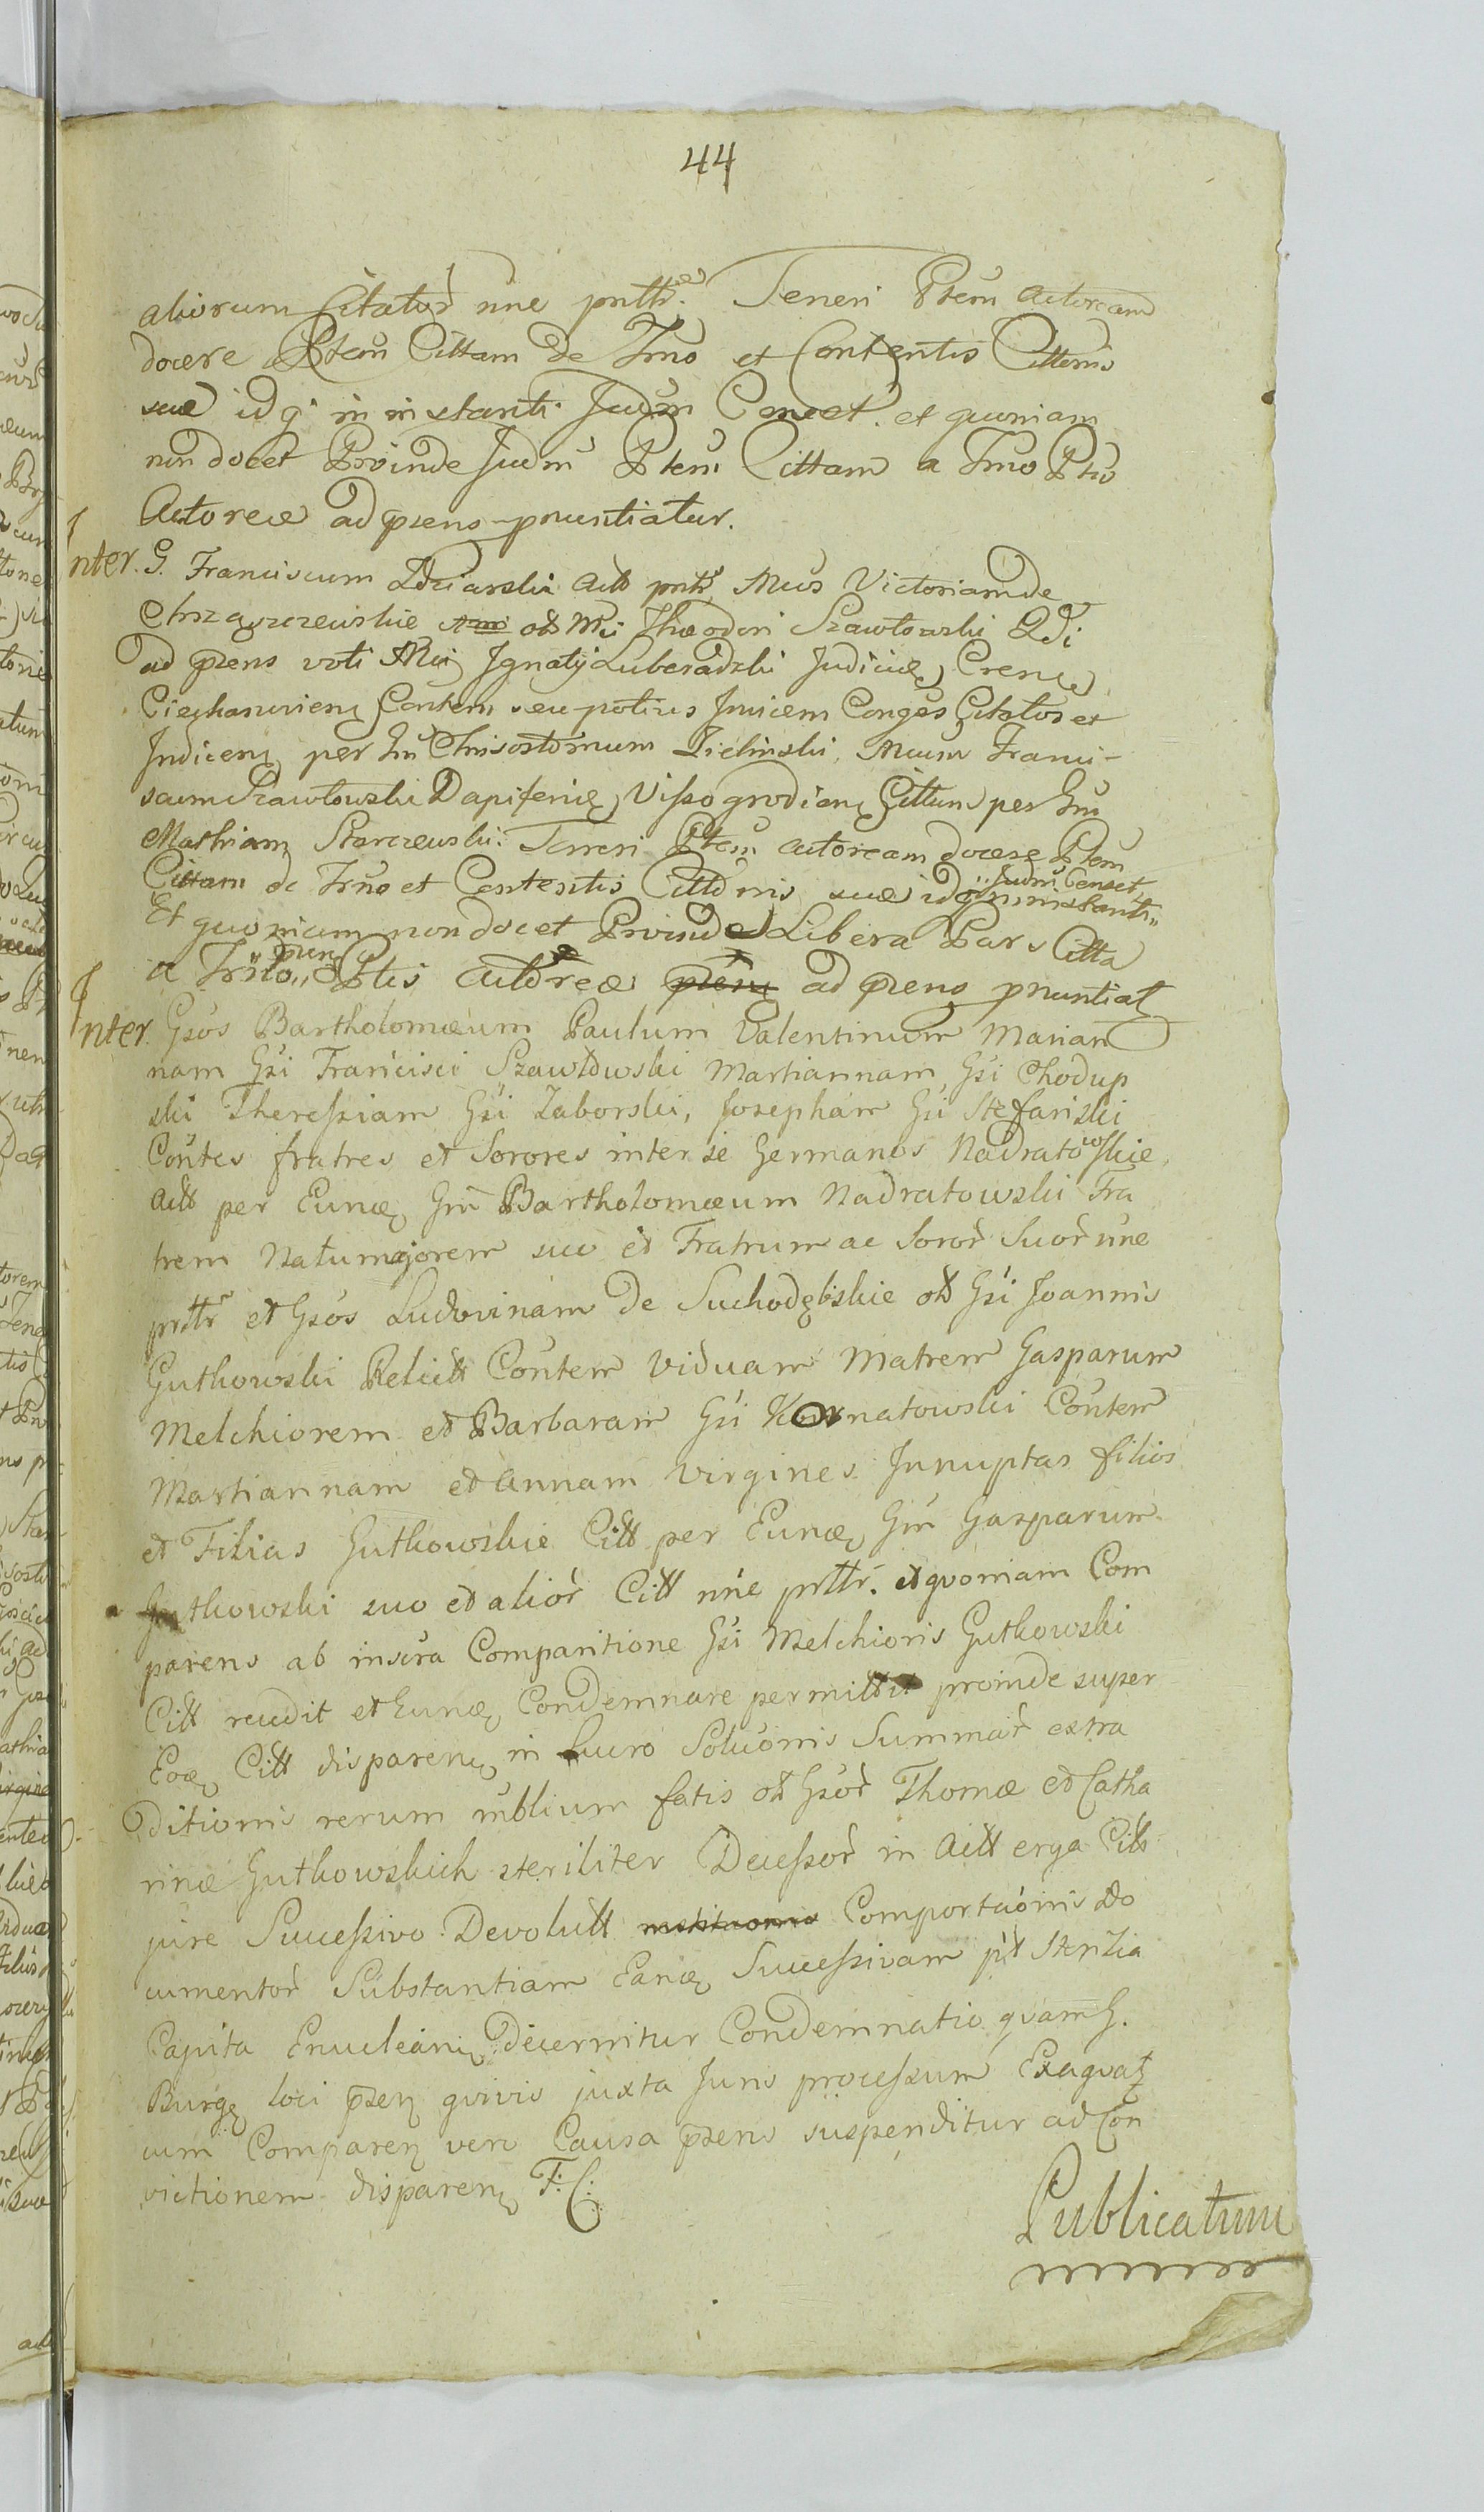 44
aliorum Citator nne pntte. Teneri Ptem Actoream
docere Ptem Cittam de Trno et Contentis Cittonis
suæ idq in instanti Judm Censet. et quoniam
non docet Proinde Judm Ptem Cittam a Trno Ptis
Actoreæ ad præns pnuntiatur.
Inter. G. Franciscum Zdziarski Act pntte Mcos Victoriam de
Chrzaszczewskie olt Mci Theodori Szawłowski
ad præns voti Mci Ignatij Luberadzki Judicis
Ciechanovien Contem seu potius Invicem Conges Citatos et
Judicem per Gm Chrisostomum Zielinski, Mcum Franci-
scum Szawłowski Dapiferum Vissogrodien Cittum per Gm
Mathiam Starczewski. Teneri Ptem actoream docere Ptem
Cittam de Trno et Contentis Cittonis suæ idq in instanti Judm Censet
Et quoniam non docet Proinde Libera Pars Citta
a Trno Ptis Actoreæ ad præns pnuntiat
Inter. Gsos Bartholomæum Paulum Valentinum Marian
nam Gsi Francisci Szawłowski Martiannam, Gsi Chodup
ski Theressiam Gsi Zaborski, Josepham Gsi Stefanski
Contes fratres et Sorores inter se Germanos Nadratowskie
Act per Eunq Gm Bartholomæum Nadratowski Fra
trem Natumajorem suo et Fratrum ac Soror Suor nne
pntte et Gsos Ludovinam de Suchodębskie olt Gsi Joannis
Gutkowski Relict Contem viduam Matrem Gasparum
Melchiorem et Barbaram Gsi Kornatowski Contem
Martiannam et Annam Virgines Innuptas filios
et Filias Gutkowskie Citt per Eunq Gm Gasparum
Gutkowski suo et alior Citt nne pntte. et quoniam Com
parens ab inscra Comparitione Gsi Melchioris Gutkowski
Citt recedit et Eunq Condemnare permittit proinde super
Eoq Citt disparen in Lucro Solvonis Summar extra
ditionis rerum mblium fatis olt Gsor Thomæ et Catha
rinæ Gutkowskich steriliter Decessor in Act erga Citt
jure Successivo Devolutt Comportaonis do
cumentor Substantiam Eanq Successivam ptt Sterilia
Capita Enuclean Decernitur Condemnatio quam G.
Burgs loci præn quivis juxta Juris processum Exaquat
cum Comparen vero Causa præns suspenditur ad Con
victionem disparen T: C:
Publicatum